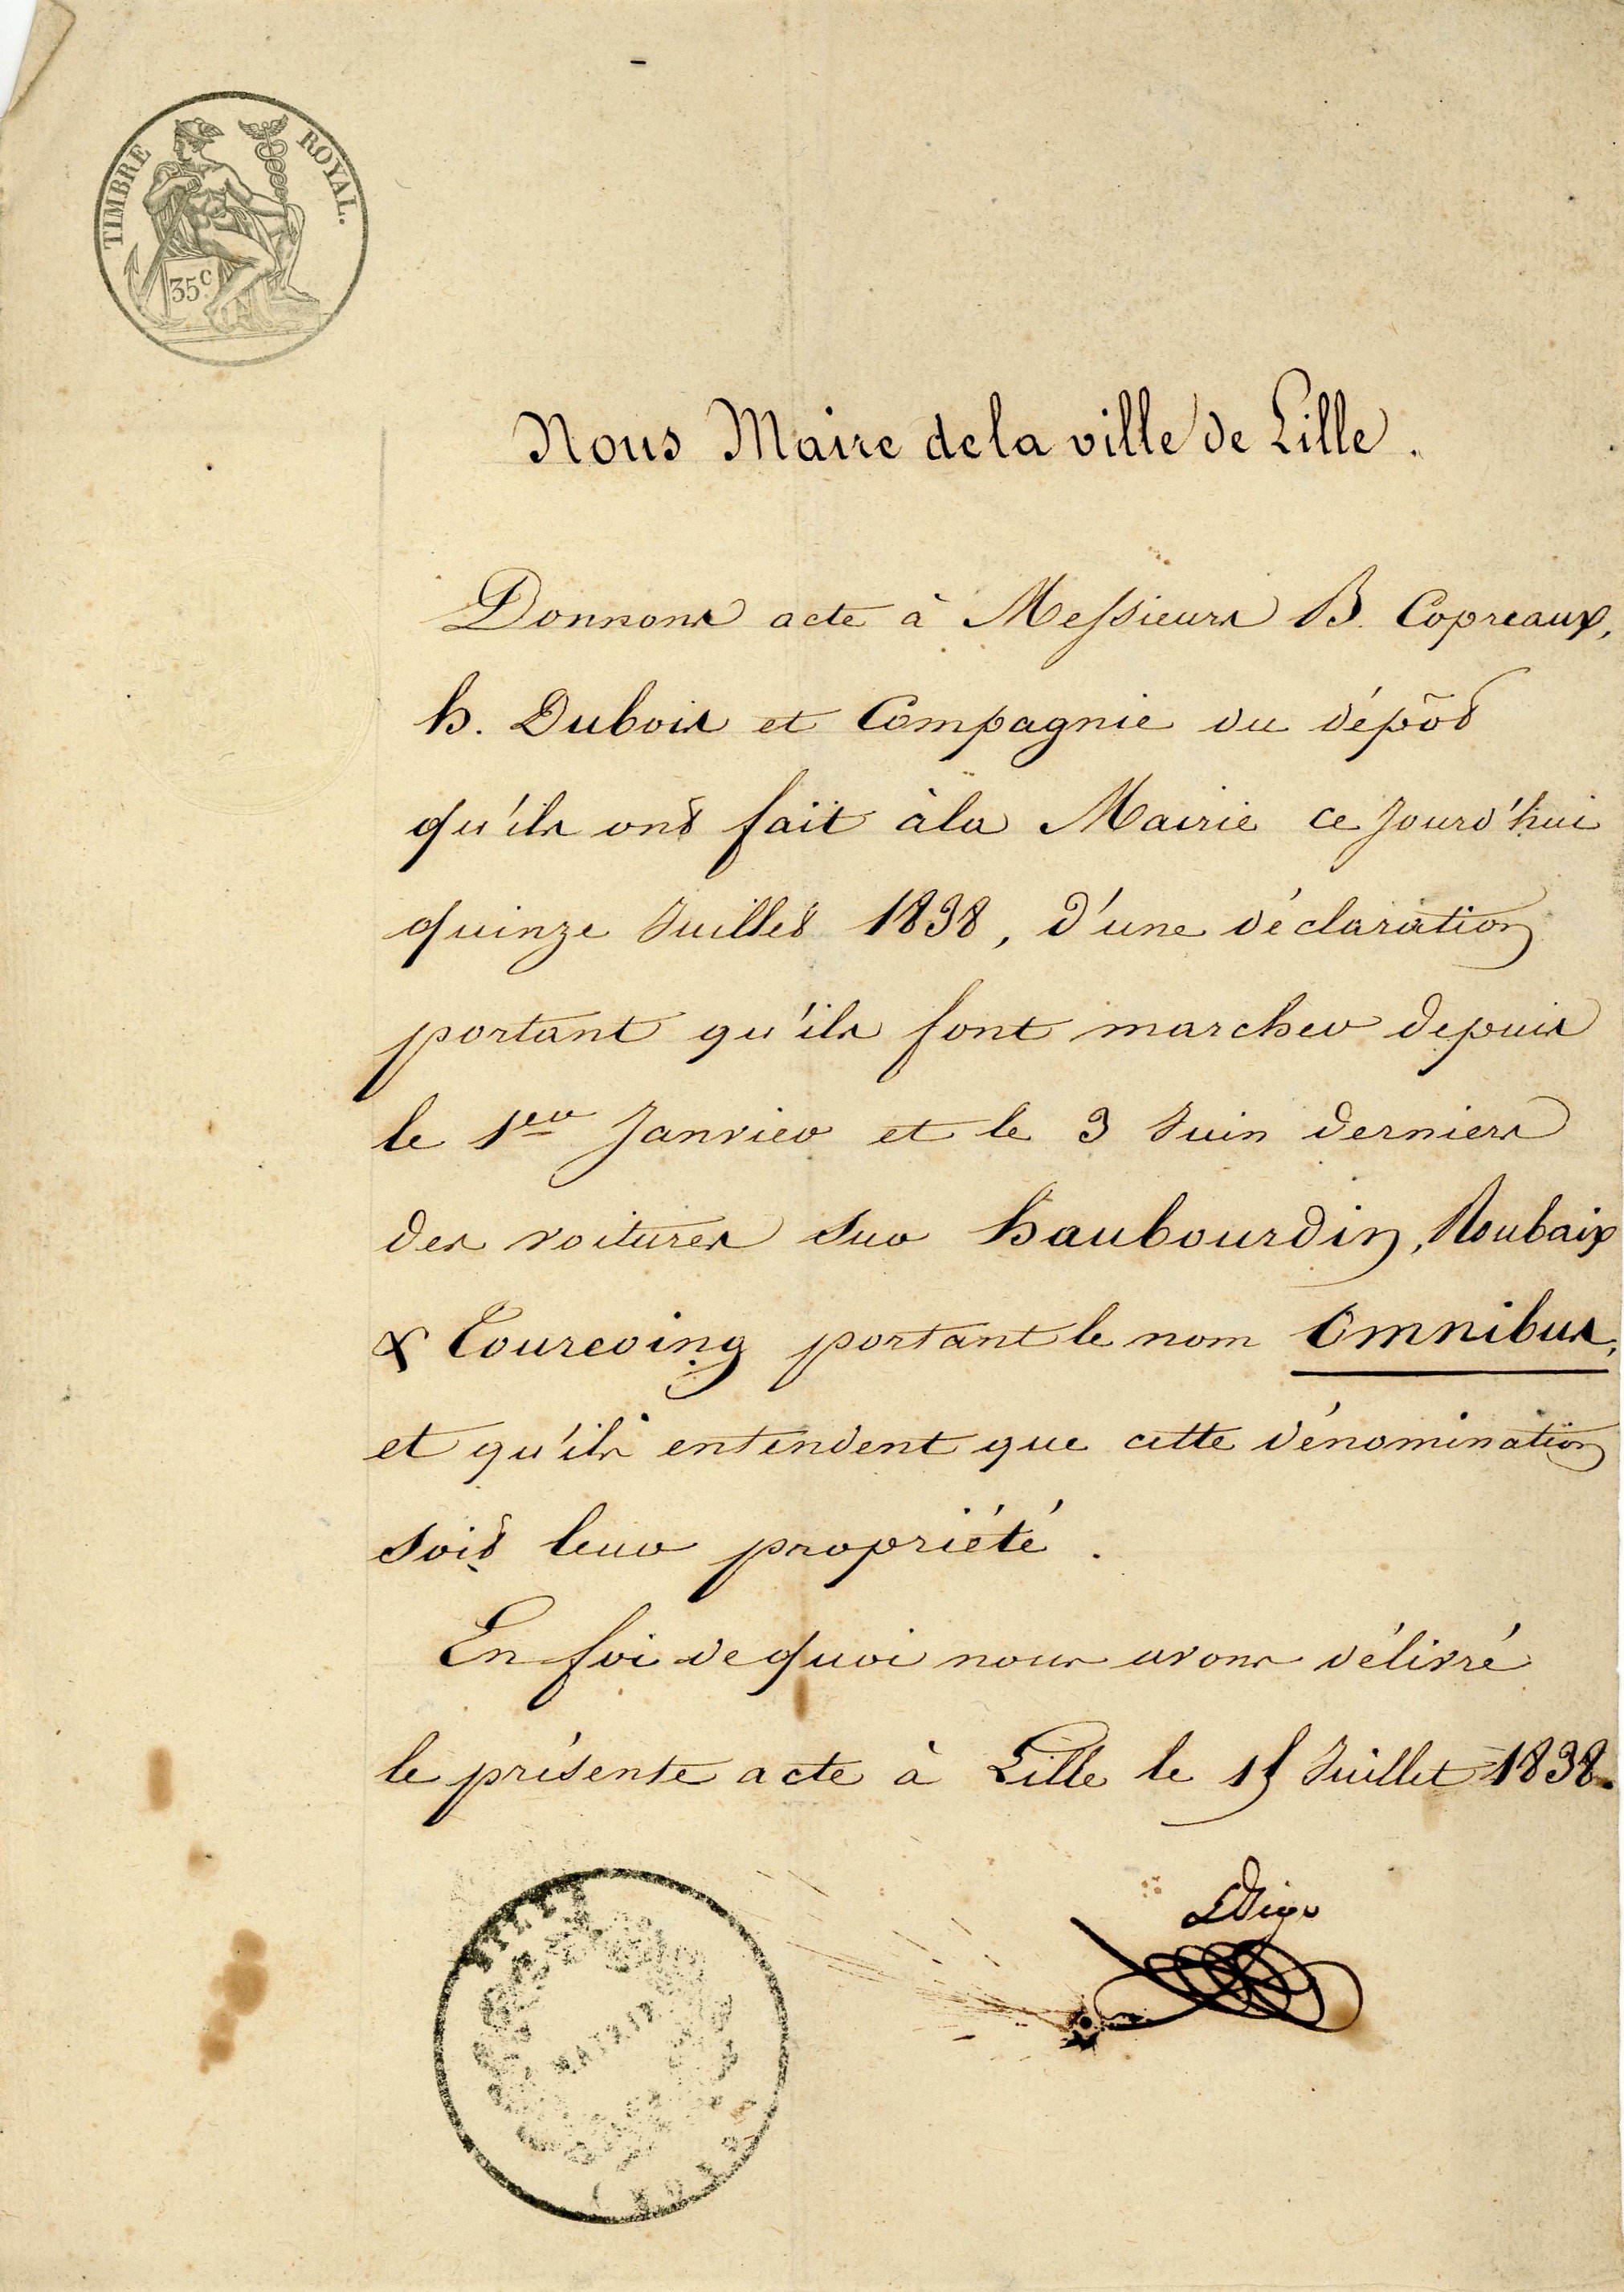 TIMBRE ROYAL.
35c
Nous Maire de la ville de Lille.
Donnons acte à Messieurs B. Copreaux,
h. Dubois et Compagnie du dépôt
qu'ils ont fait à la Mairie ce jourd'hui
quinze Juillet 1838, d'une déclaration
portant qu'ils font marcher depuis
le 1er Janvier et le 3 Juin derniers
des voitures sur haubourdin, Roubaix
& Tourcoing portant le nom Omnibus,
et qu'ils entendent que cette dénomination
soit leur propriété.
En foi de quoi nous avons délivré
le présente acte à Lille le 15 Juillet 1838.